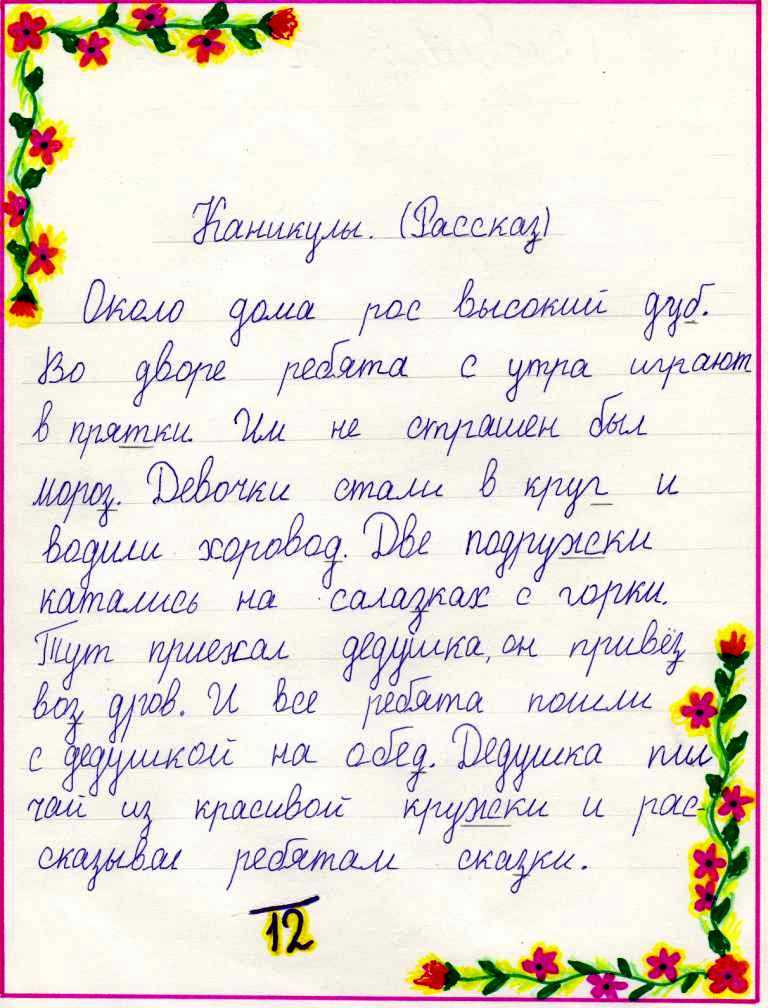 Каникулы. (Рассказ)
Около дома рос высокий дуб.
Во дворе ребята с утра играют
в прятки. Им не страшен был
мороз. Девочки стали в круг и
водили хоровод. Две подружки
катались на салазках с горки.
Тут приехал дедушка, он привёз
воз дров. И все ребята пошли
с дедушкой на обед. Дедушка пил
чай из красивой кружки и рас-
сказывал ребятам сказки.
12